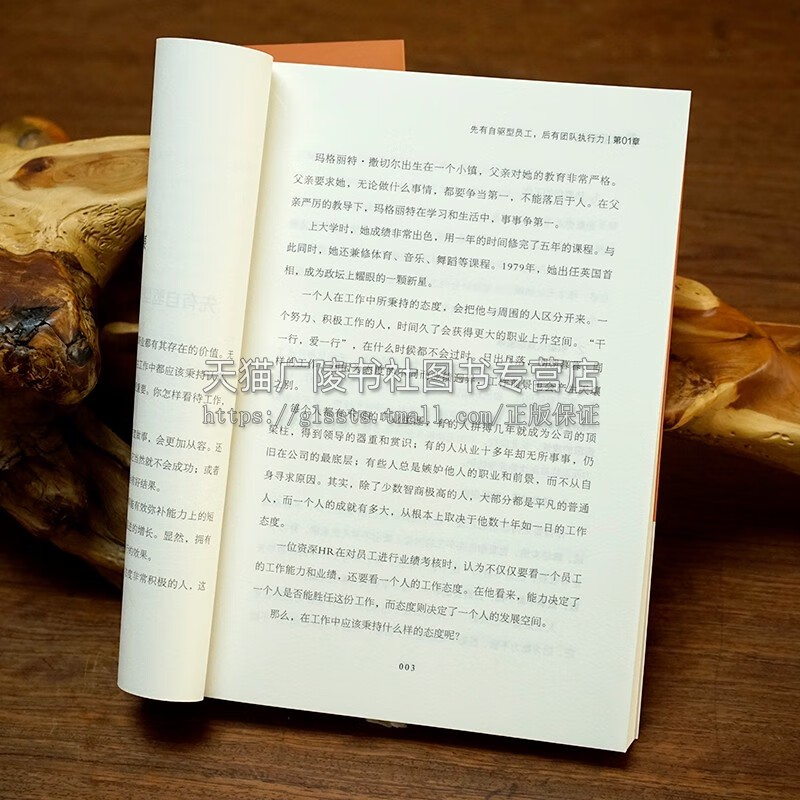 先有自驱型员工，后有团队执行力 | 第01章
玛格丽特·撒切尔出生在一个小镇，父亲对她的教育非常严格。
父亲要求她，无论做什么事情，都要争当第一，不能落后于人。在父
亲严厉的教导下，玛格丽特在学习和生活中，事事争第一。
上大学时，她成绩非常出色，用一年的时间修完了五年的课程。与
此同时，她还兼修体育、音乐、舞蹈等课程。1979年，她出任英国首
相，成为政坛上耀眼的一颗新星。
一个人在工作中所秉持的态度，会把他与周围的人区分开来。一
个努力、积极工作的人，时间久了会获得更大的职业上升空间。“干
一行，爱一行”，在什么时候都不会过时。
天猫广陵书社图书专营店
之别。
https://glssts.tmall.com/正版保证
有的人拼搏几年就成为公司的顶
梁柱，得到领导的器重和赏识；有的人从业十多年却无所事事，仍
旧在公司的最底层；有些人总是嫉妒他人的职业和前景，而不从自
身寻求原因。其实，除了少数智商极高的人，大部分都是平凡的普通
人，而一个人的成就有多大，从根本上取决于他数十年如一日的工作
态度。
一位资深HR在对员工进行业绩考核时，认为不仅仅要看一个员工
的工作能力和业绩，还要看一个人的工作态度。在他看来，能力决定了
一个人是否能胜任这份工作，而态度则决定了一个人的发展空间。
那么，在工作中应该秉持什么样的态度呢？
003
都有其存在的价值。无
工作中都应该秉持认
重要。你怎样看待工作，
故事，会更加从容。还
当然就不会成功；或者
好结果。
能有效弥补能力上的短
的增长。显然，拥有
的效果。
度非常积极的人，这